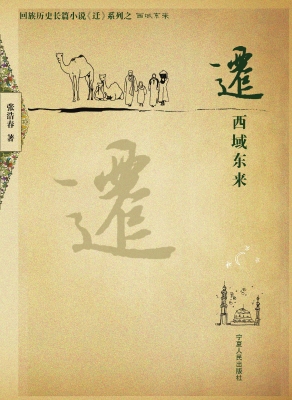 回族历史长篇小说《迁》系列之 西域东来
遷
西域东来
张浩春 著
遷
宁夏人民出版社